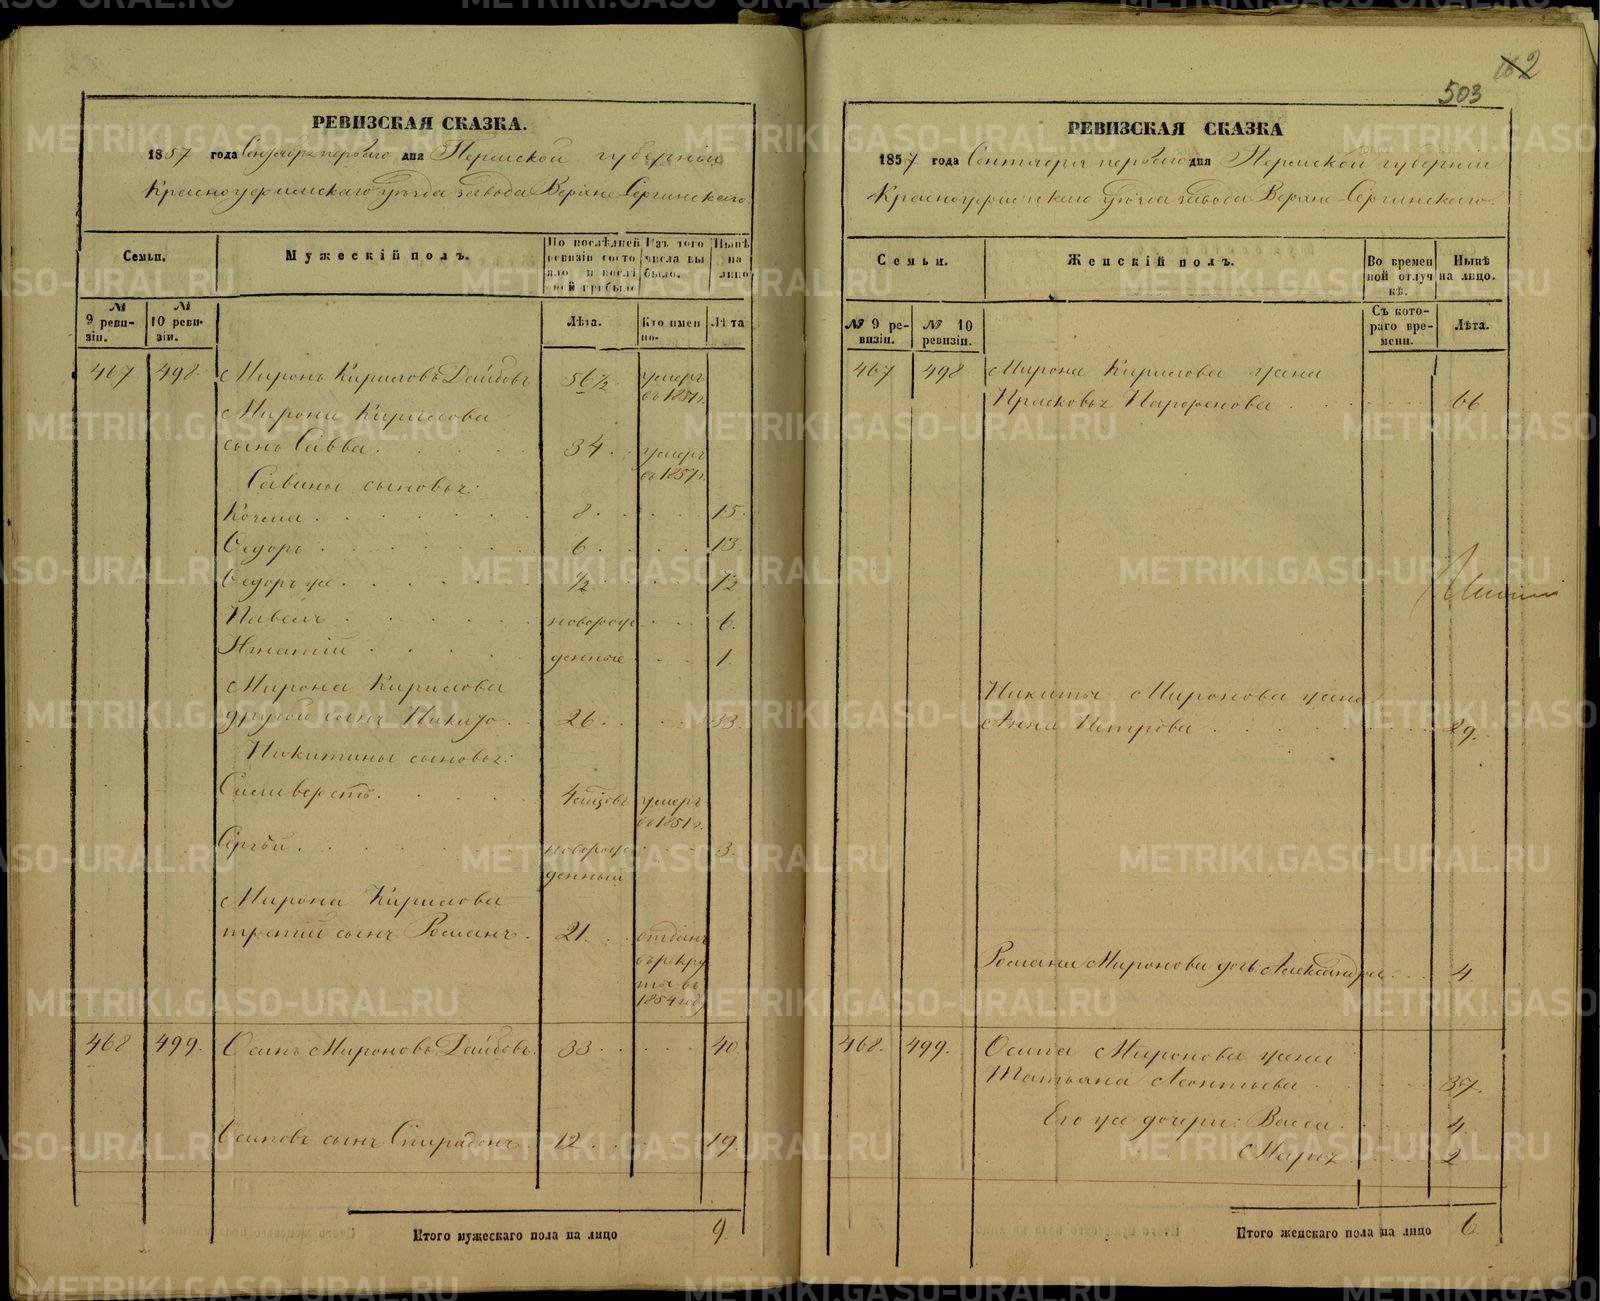 162
503
РЕВИЗСКАЯ СКАЗКА.
1857 года Сентября перваго дня Пермской губерніи
Красноуфимскаго уѣзда завода Верхне Сергинскаго
Семьи.
Мужескій полъ.
По послѣдней ревизіи состояло и послѣ ней прибыло
Изъ того числа выбыло.
Нынѣ на лицо
№ 9 ревизіи.
№ 10 ревизіи.
Лѣта.
Кто имено-
Лѣта
467 498. Миронъ Кириловъ Дайбовъ 56½ умеръ въ 1851г.
Мирона Кирилова
сынъ Савва. 34. умеръ въ 1857г.
Савины сыновья:
Козьма. 8. 15.
Ѳедоръ. 6. 13.
Ѳедоръ же. ½ 12
Павелъ. новорож- 6.
Игнатій. денные 1.
Мирона Кирилова
другой сынъ Никита. 26. 33.
Никитины сыновья:
Силиверстъ. умеръ въ 1851г.
Сергѣй. новорожденный 3.
Мирона Кирилова
третій сынъ Романъ. 21. отданъ въ рекруты въ 1854 году
468 499. Осипъ Мироновъ Дайбовъ. 33. 40.
Осиповъ сынъ Спиридонъ. 12. 19.
Итого мужескаго пола на лицо 9.
РЕВИЗСКАЯ СКАЗКА
1857 года Сентября перваго дня Пермской губерніи
Красноуфимскаго уѣзда завода Верхне Сергинскаго.
Семьи.
Женскій полъ.
Во временной отлучкѣ.
Нынѣ на лицо.
№ 9 ревизіи.
№ 10 ревизіи.
Съ котораго времени.
Лѣта.
467 498 Мирона Кирилова жена
Прасковья Парфенова. 66
Никиты Миронова жена
Анна Петрова. 29.
Романа Миронова дочь Александра. 4.
468. 499. Осипа Миронова жена
Татьяна Леонтьева 37.
Его же дочери: Васса. 4.
Марья 2
Итого женскаго пола на лицо 6.
METRIKI.GASO-URAL.RU